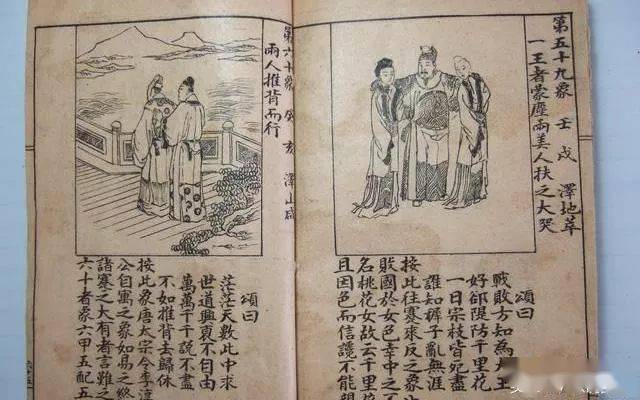 第五十九象 壬戌 澤地萃
一王者蒙塵兩美人扶之大哭
頌曰
戰敗方知為大王
好卻隄防千里花
一日宗枝皆盡
誰知褲子亂無涯
按此往蹇來反之象
敗國於女色幸中之不
名桃花女故云千里花
且因色而信讒不能
第六十象 癸亥 澤山咸
兩人推背而行
頌曰
茫茫天數此中求
世道興衰不自由
萬萬千千說不盡
不如推背去歸休
按此象唐太宗令李淳
公自寓之象如易之終
諸蹇之大有者言難之
六十者象六甲五配五